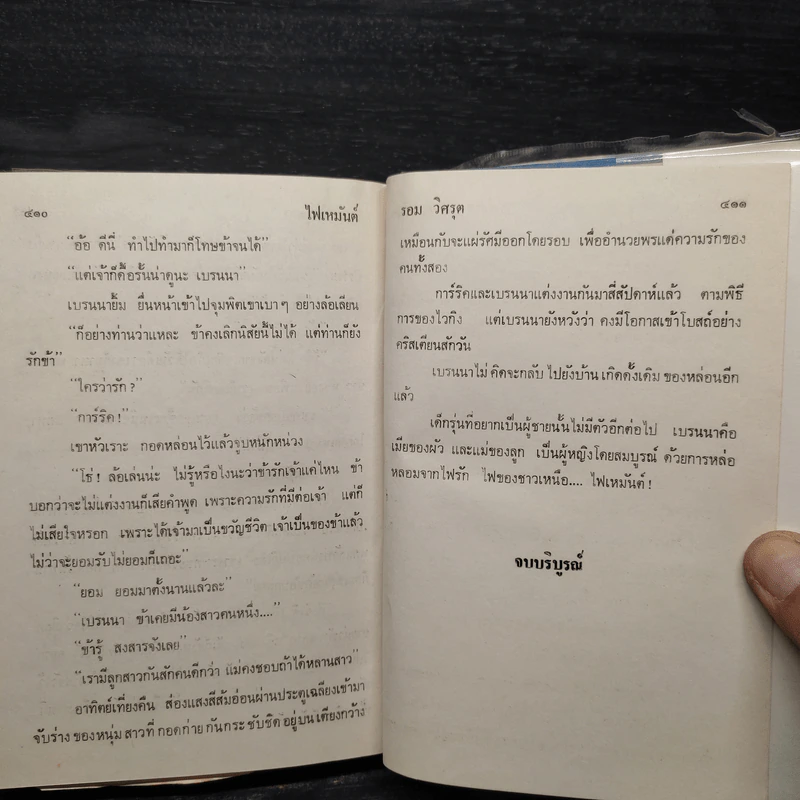 ๔๑๐ ไฟเหมันต์
“อ้อ ดีนี่ ทำไปทำมาก็โทษข้าจนได้”
“แต่เจ้าก็ดื้อรั้นน่าดูนะ เบรนนา”
เบรนนายิ้ม ยื่นหน้าเข้าไปจุมพิตเขาเบา ๆ อย่างล้อเลียน
“ก็อย่างท่านว่าแหละ ข้าคงเลิกนิสัยนี้ไม่ได้ แต่ท่านก็ยัง
รักข้า”
“ใครว่ารัก ?”
“การ์ริค !”
เขาหัวเราะ กอดหล่อนไว้แล้วจูบหนักหน่วง
“โธ่ ! ล้อเล่นน่ะ ไม่รู้หรือไงนะว่าข้ารักเจ้าแค่ไหน ข้า
บอกว่าจะไม่แต่งงานก็เสียคำพูด เพราะความรักที่มีต่อเจ้า แต่ก็
ไม่เสียใจหรอก เพราะได้เจ้ามาเป็นขวัญชีวิต เจ้าเป็นของข้าแล้ว
ไม่ว่าจะยอมรับไม่ยอมก็เถอะ”
“ยอม ยอมมาตั้งนานแล้วละ”
“เบรนนา ข้าเคยมีน้องสาวคนหนึ่ง....”
“ข้ารู้ สงสารจังเลย”
“เรามีลูกสาวกันสักคนดีกว่า แม่คงชอบถ้าได้หลานสาว”
อาทิตย์เที่ยงคืน ส่องแสงสีส้มอ่อนผ่านประตูเฉลียงเข้ามา
จับร่าง ของหนุ่ม สาวที่ กอดก่าย กันกระ ชับชิด อยู่บน เตียงกว้าง
รอม วิศรุต ๔๑๑
เหมือนกับจะแผ่รัศมีออกโดยรอบ เพื่ออำนวยพรแด่ความรักของ
คนทั้งสอง
การ์ริคและเบรนนาแต่งงานกันมาสี่สัปดาห์แล้ว ตามพิธี
การของไวกิง แต่เบรนนายังหวังว่า คงมีโอกาสเข้าโบสถ์อย่าง
คริสเตียนสักวัน
เบรนนาไม่ คิดจะกลับ ไปยังบ้าน เกิดดั้งเดิม ของหล่อนอีก
แล้ว
เด็กรุ่นที่อยากเป็นผู้ชายนั้นไม่มีตัวอีกต่อไป เบรนนาคือ
เมียของผัว และแม่ของลูก เป็นผู้หญิงโดยสมบูรณ์ ด้วยการหล่อ
หลอมจากไฟรัก ไฟของชาวเหนือ.... ไฟเหมันต์ !
จบบริบูรณ์